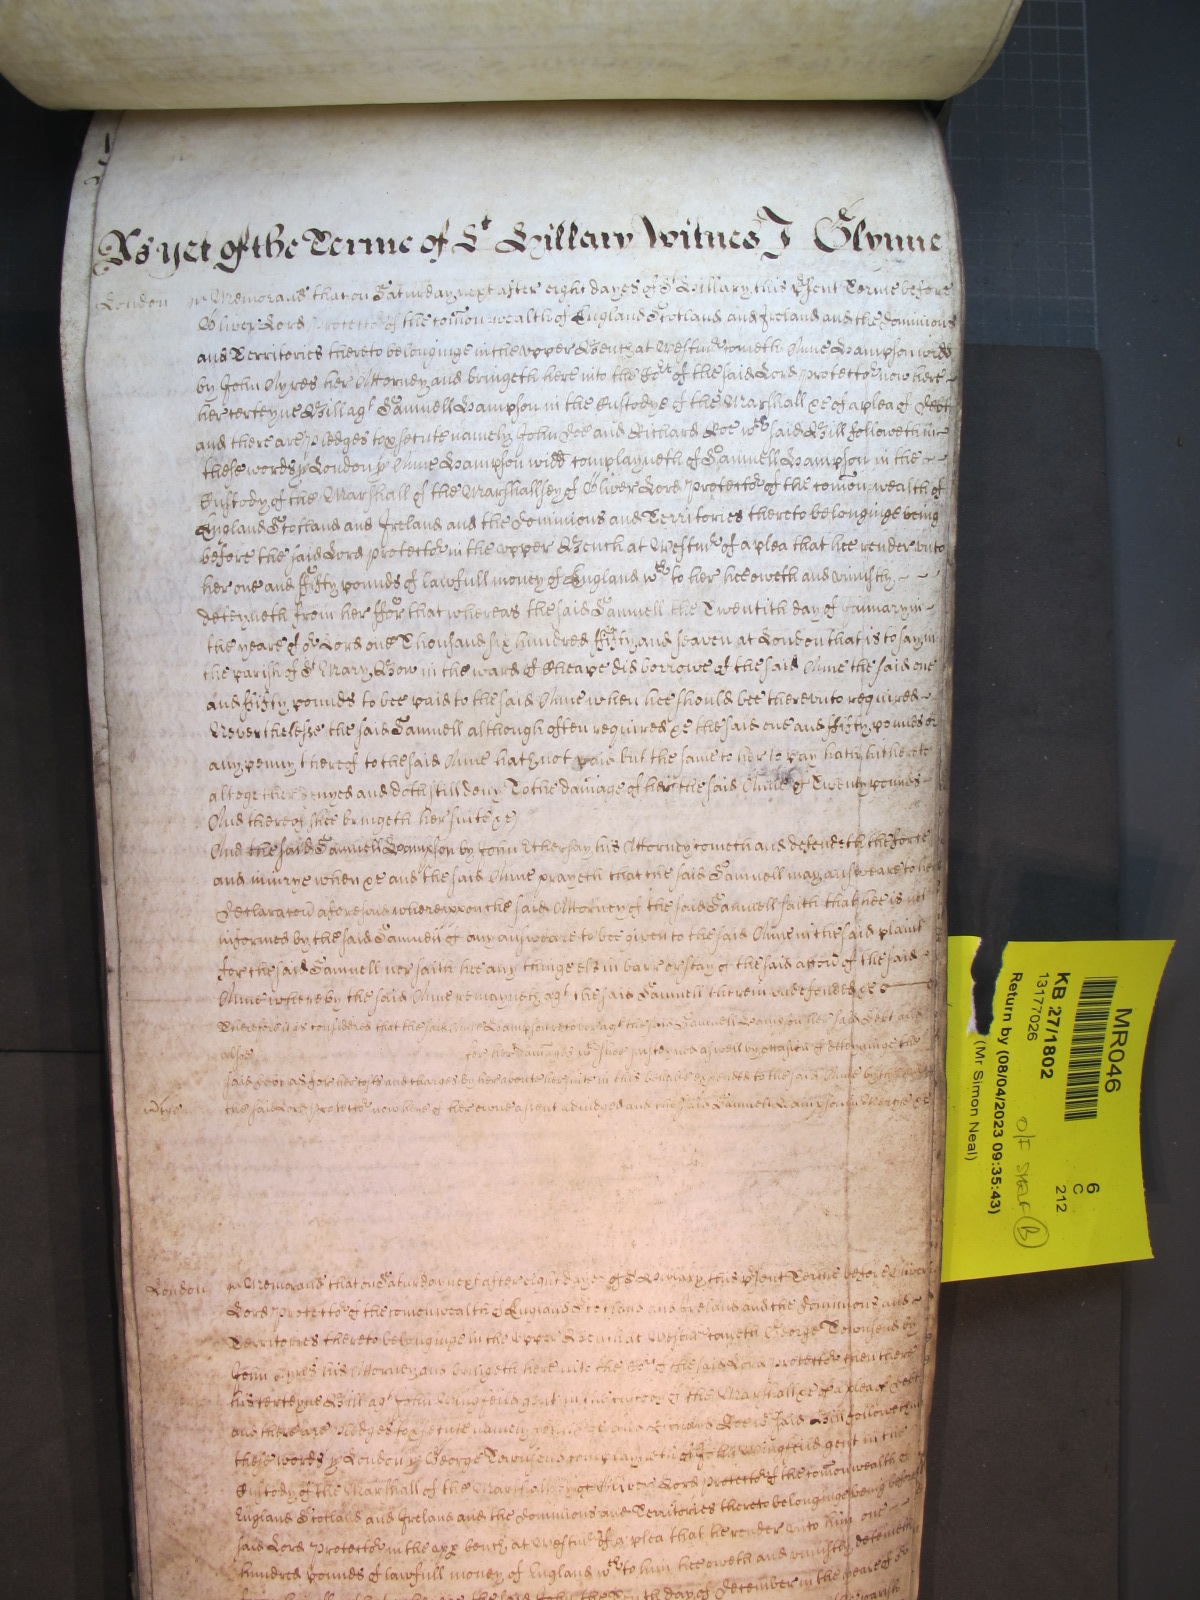 As yet of the Terme of St Hillary Witnes J Glynne
London ss Memorand that on Saturday next after eight dayes of St Hillary this psent Terme before
Oliver Lord Protector of the comon wealth of England Scotland and Ireland and the dominions
and Territories thereto belonginge in the vpper Bench at Westmr cometh Anne Hampson widd
by John Ayres her Attorney and bringeth here into the Cort of the said Lord Protector now here
her certeyne Bill agt Samuell Hampson in the Custodye of the Marshall &c of a plea of Debt
and there are pledges to psecute namely John Doe and Richard Roe wch said Bill followeth in
these words ss London ss Anne Hampson widd complayneth of Samuell Hampson in the
Custody of the Marshall of the Marshallsey of Oliver Lord Protector of the comon wealth of
England Scotland and Ireland and the dominions and Territories thereto belonginge being
before the said Lord Protector in the vpper Bench at Westmr of a plea that hee render vnto
her one and fifty pounds of lawfull money of England wch to her hee oweth and vniustly
deteyneth from her ffor that whereas the said Samuell the Twentith day of January in
the yeare of or Lord one Thousand six hundred fifty and seaven at London that is to say in
the parish of St Mary Bow in the ward of Cheape did borrowe of the said Anne the said one
and fifty pounds to bee paid to the said Anne when hee should bee therevnto required
Neverthelesse the said Samuell although often required &c the said one and fifty pounds or
any penny thereof to the said Anne hath not paid but the same to her to pay hath hitherto
altogether denyed and doth still deny To the damage of her the said Anne of Twenty pounds
And thereof shee bringeth her suite &c
And the said Samuell Hampson by John his Attorney cometh and defendeth the force
and iniurye when &c and the said Anne prayeth that the said Samuell may answeare to her
Declaracon aforesaid wherevpon the said Attorney of the said Samuell saith that hee is not
informed by the said Samuell of any answeare to bee given to the said Anne in the said plaint
for the said Samuell nor saith hee any thinge els in barr or stay of the said accon of the said
Anne whereby the said Anne remayneth agt the said Samuell therein vndefended &c
Therefore it is considered that the said Anne Hampson recover agt the said Samuell Hampson her said Debt and
alsoe for her damages wch shee susteyned aswell by occasion of deteyninge the
said Debt as for her costs and charges by her aboute her suite in this behalfe expended to the said Anne by the
the said Lord Protector now here of her owne assent adiudged and the said Samuell Hampson in Mercye &c
London ss Memorand that on Saturday next after eight dayes of St Hillary this psent Terme before Oliver
Lord Protector of the comonwealth of England Scotland and Ireland and the dominions and
Territories thereto belonginge in the vpper Bench at Westmr cometh George Townsend by
John Ayres his Attorney and bringeth here into the Cort of the said Lord Protector then there
his certeyne Bill agt John Wingfeild gent in the custody of the Marshall &c of a plea of debt
and there are pledges to psecute namely John Doe and Richard Roe wch said Bill followeth in
these words ss London ss George Townsend complayneth of John Wingfeild gent in the
Custody of the Marshall of the Marshallsey of Oliver Lord Protector of the comonwealth of
England Scotland and Ireland and the dominions and Territories thereto belonginge being before the
said Lord Protector in the vpp bench at Westmr of a plea that he render vnto him one
hundred pounds of lawfull money of England wch to him hee oweth and vniustly deteineth
the said John the Tenth day of December in the yeare of or
MR046
6
C
212
KB 27/1802
13177026
O/F SHELF B
Return by (08/04/2023 09:35:43)
(Mr Simon Neal)